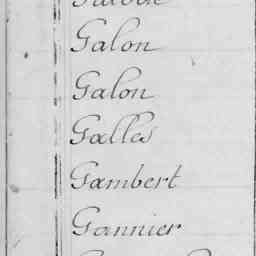 Galon
Galon
Galles
Gambert
Gannier